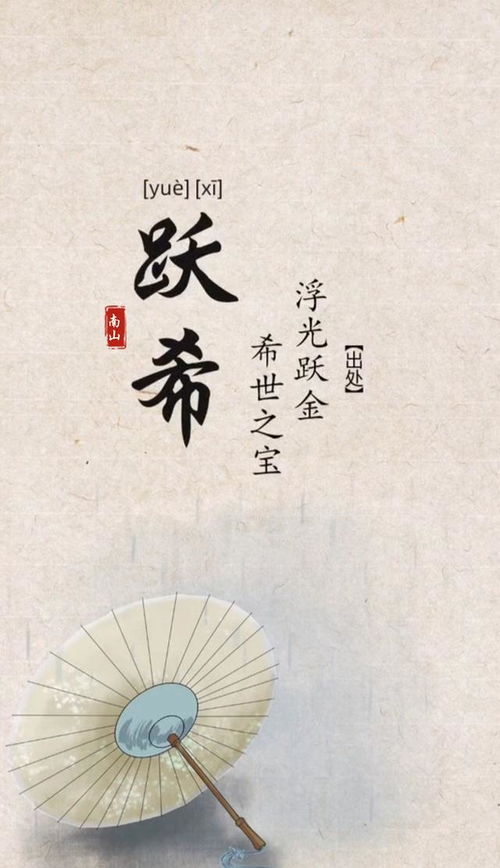 [yuè] [xī]
跃希
南山
【出处】
浮光跃金
希世之宝